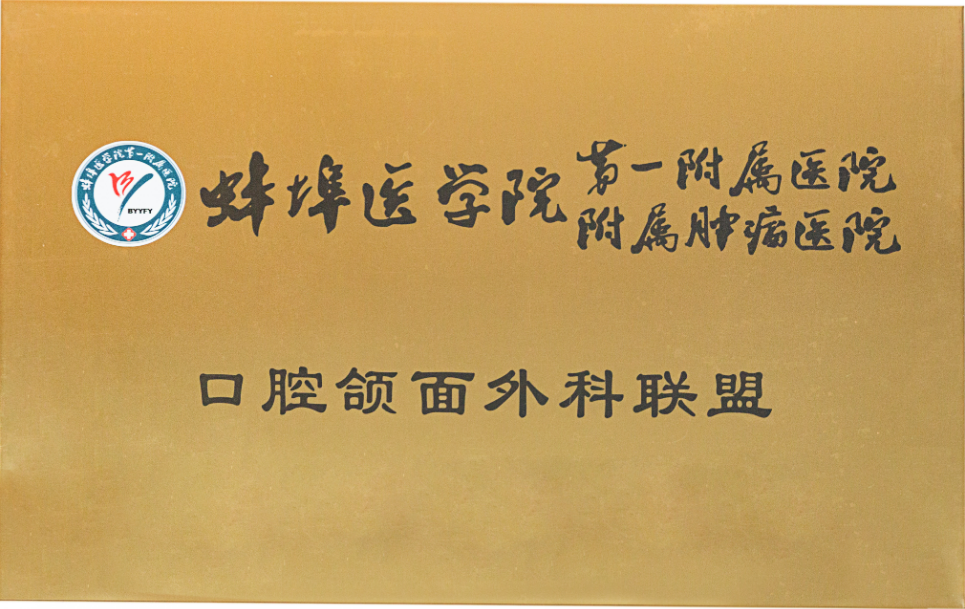 蚌埠医学院第一附属医院
BYYFY
蚌埠医学院 第一附属医院
附属肿瘤医院
口腔颌面外科联盟